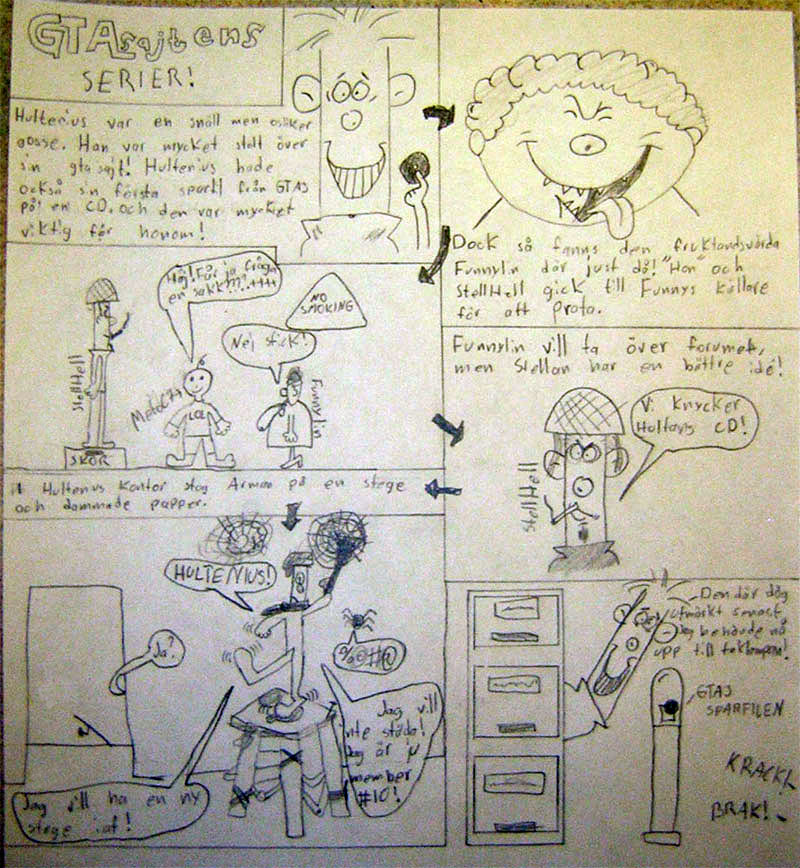 GTAsajtens
SERIER!
Hultenius var en snäll men osäker
gosse. Han var mycket stolt över
sin gta sajt! Hultenius hade
också sin första sparfil från GTA3
på en CD, och den var mycket
viktig för honom!
Dock så fanns den fruktansvärda
Funnylin där just då! "Hon" och
StellHell gick till Funnys källare
för att prata.
Hej! Får ja fråga
en sakk??
NO
SMOKING
Nej stick!
StellHell
LOL
Funnylin
SKOR
Funnylin vill ta över forumet,
men Stellan har en bättre idé!
Vi knycker
CD!
StellHell
Hultenius kontor stog Arman på en stege
och dammade papper.
HULTENIUS!
Ja?
%@##@
Jag vill
inte städa!
Jag är ju
member
#10!
Jag vill ha en ny
stege iaf!
Den där dög
utmärkt senast
jag behövde nå
upp till taklampan!
GTA3
SPARFILEN
KRACKL
BRAK!